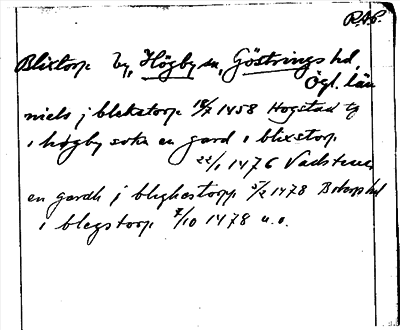 R.A.P.
Blixtorp by, Högby sn, Göstrings hd,
Ögl. län
niels j blekstorp 18/7 1458 Hogstad tg
i høgby sokn en gard i blixstorp
22/1 1476 Vadstena
en gardh j bleghestorpp 3/2 1478 Bobergs hd
i blegstorp 7/10 1478 u.o.